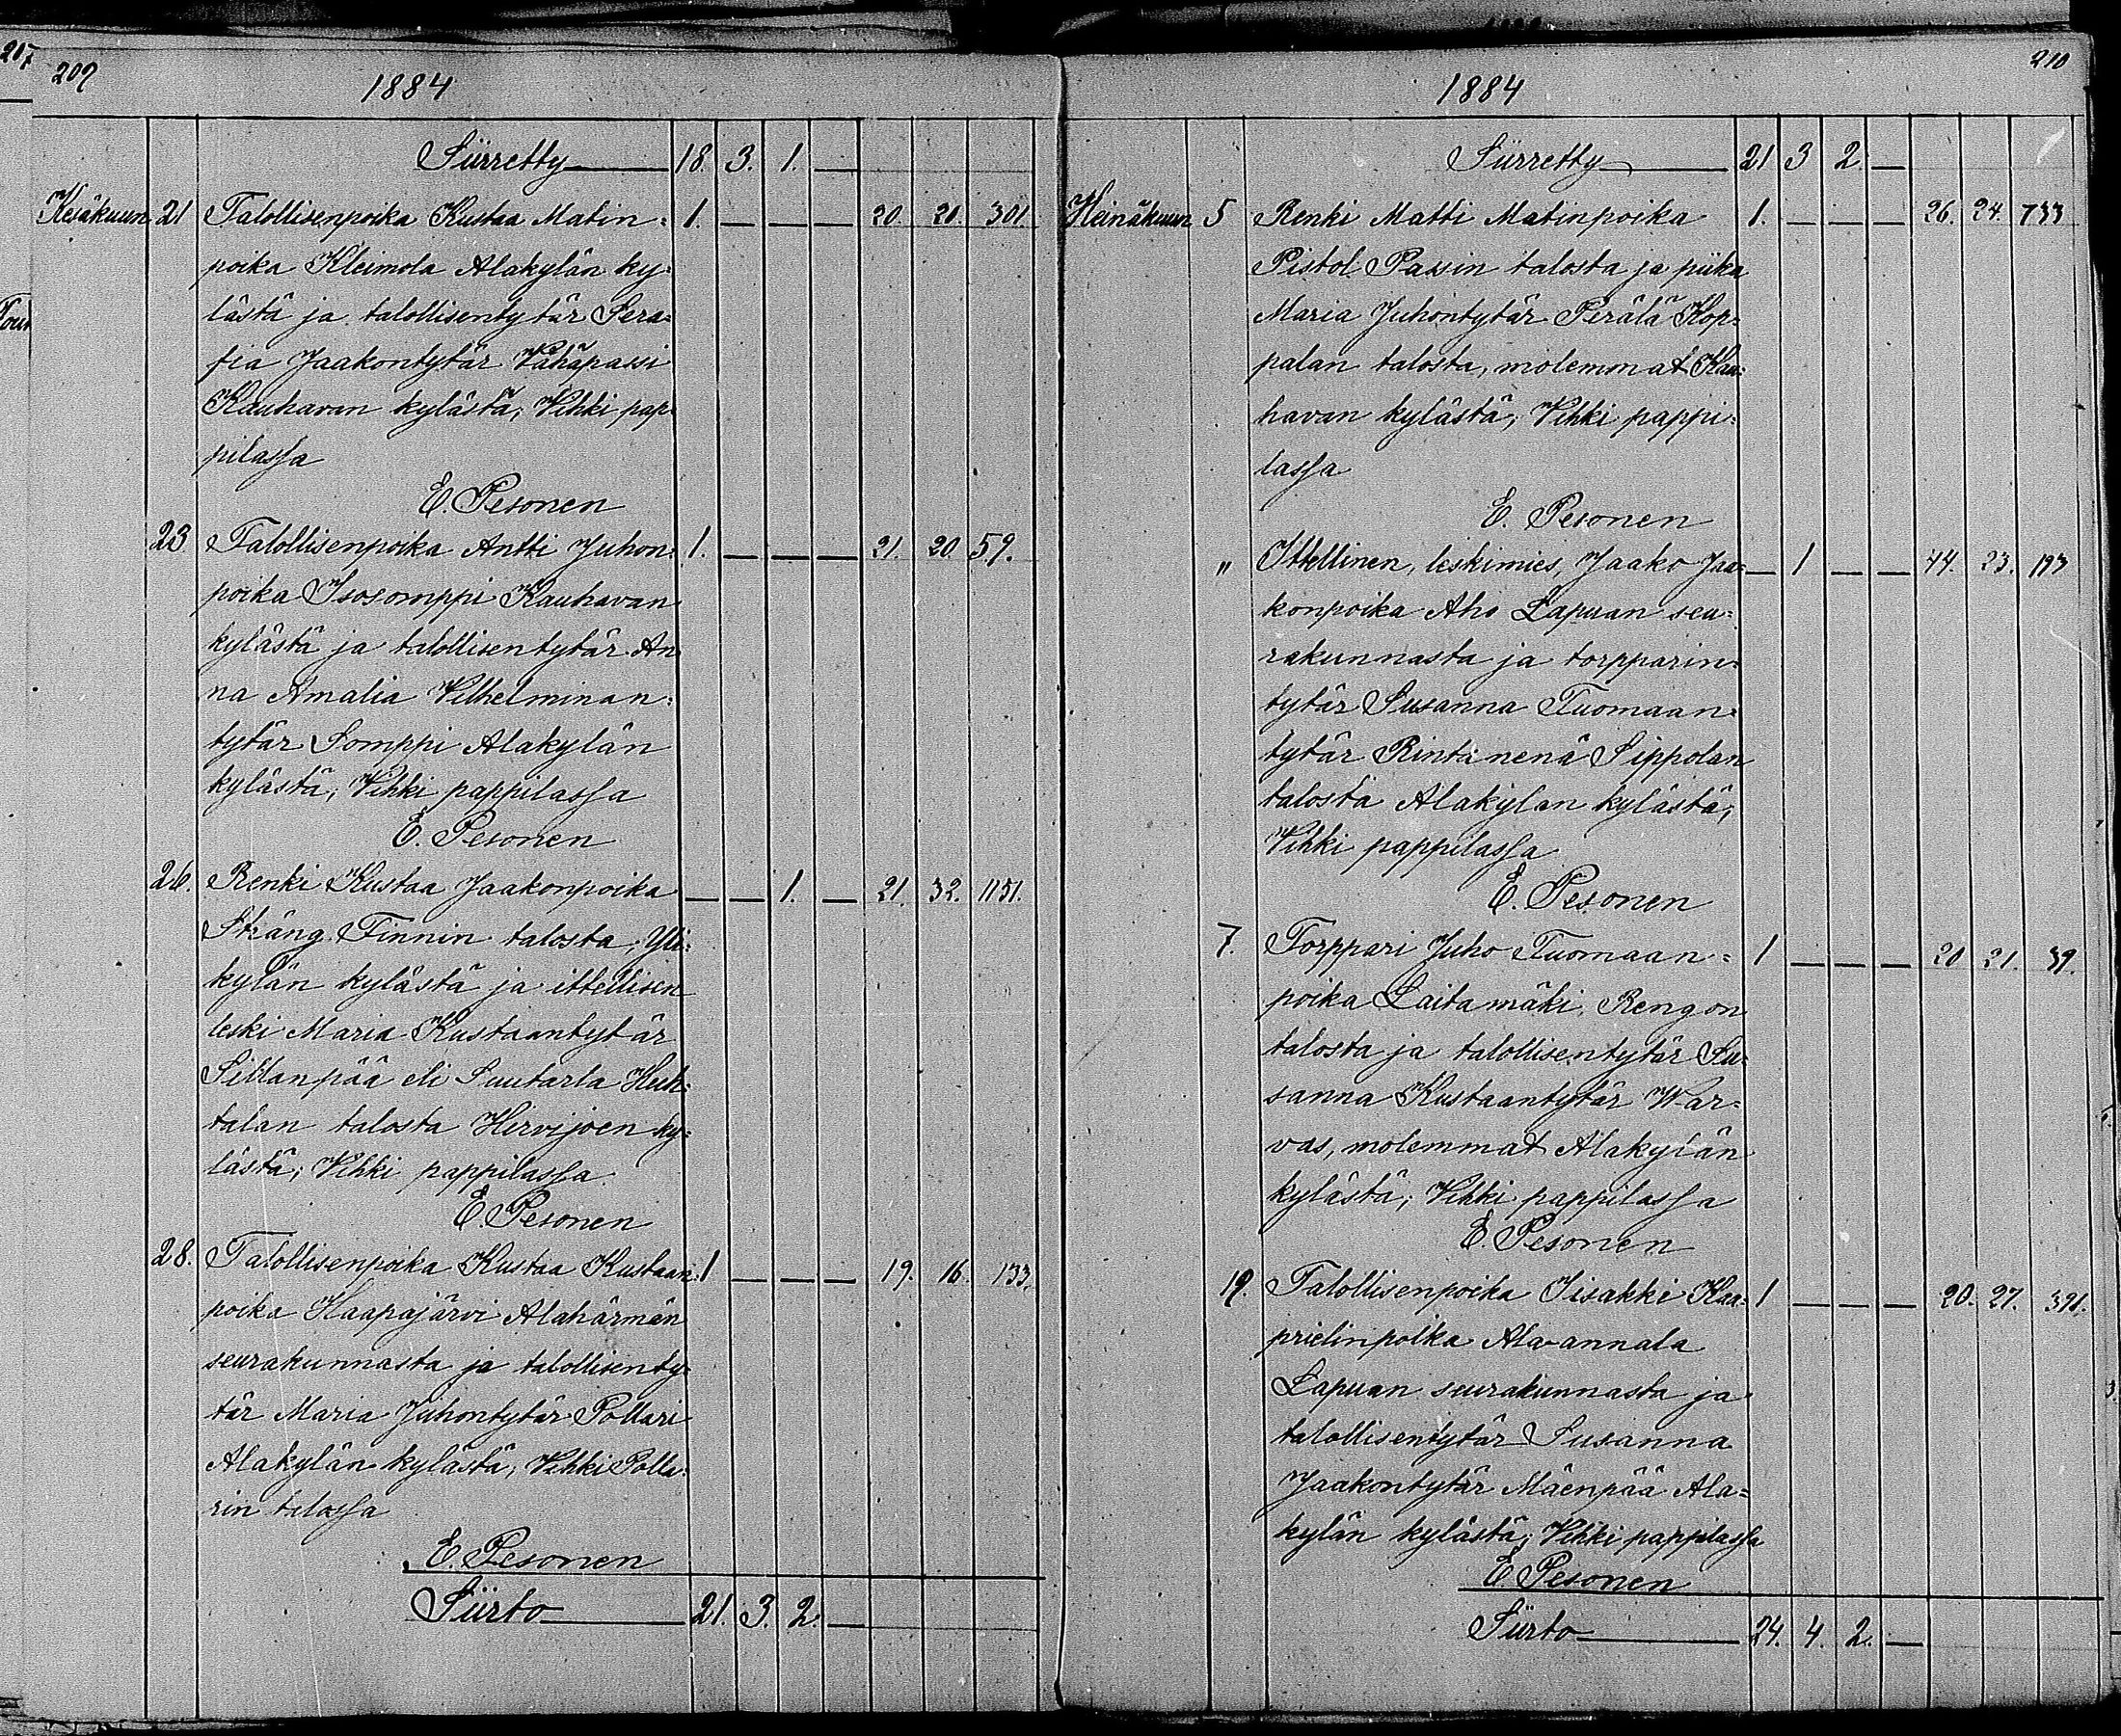 207
209
1884
Siirretty 18. 3. 1. —
Kesäkuun 21 Talollisenpoika Kustaa Matin= 1. — — — 20. 20. 301.
poika Kleimola Alakylän ky=
lästä ja talollisentytär Sera=
fia Jaakontytär Vähäpassi
Kauhavan kylästä; Vihki pap=
pilassa
E. Pesonen
23. Talollisenpoika Antti Juhon= 1. — — — 21. 20. 59.
poika Isosomppi Kauhavan
kylästä ja talollisentytär An
na Amalia Vilhelminan=
tytär Somppi Alakylän
kylästä; Vihki pappilassa
E. Pesonen
26. Renki Kustaa Jaakonpoika — — 1. — 21. 32. 1151.
Sträng Finnin talosta, Yli=
kylän kylästä ja ittellisen
leski Maria Kustaantytär
Sillanpää eli Suutarla Huh=
talan talosta Hirvijoen ky=
lästä; Vihki pappilassa.
E. Pesonen
28. Talollisenpoika Kustaa Kustaan= 1 — — — 19. 16. 133.
poika Haapajärvi Alahärmän
seurakunnasta ja talollisenty=
tär Maria Juhontytär Pollari
Alakylän kylästä; Vihki Polla=
rin talossa
E. Pesonen
Siirto 21. 3. 2. —
210
1884
Siirretty 21 3 2. —
Heinäkuun 5 Renki Matti Matinpoika 1. — — — 26. 24. 733
Pistol Passin talosta ja piika
Maria Juhontytär Perälä Kop=
palan talosta, molemmat Kau=
havan kylästä; Vihki pappi=
lassa
E. Pesonen
" Ittellinen, leskimies, Jaako Jaa= — 1 — — 44. 23. 193
konpoika Aho Lapuan seu=
rakunnasta ja torpparin=
tytär Susanna Tuomaan=
tytär Rintanenä Sippolan
talosta Alakylän kylästä;
Vihki pappilassa
E. Pesonen
7. Torppari Juho Tuomaan= 1 — — — 20 21. 39.
poika Laitamäki, Rengon
talosta ja talollisentytär Su=
sanna Kustaantytär War=
vas, molemmat Alakylän
kylästä; Vihki pappilassa
E. Pesonen
19. Talollisenpoika Iisakki Kaa= 1 — — — 20. 27. 391.
prielinpoika Ala-annala
Lapuan seurakunnasta ja
talollisentytär Susanna
Jaakontytär Mäenpää Ala=
kylän kylästä; Vihki pappilassa
E. Pesonen
Siirto 24. 4. 2. —